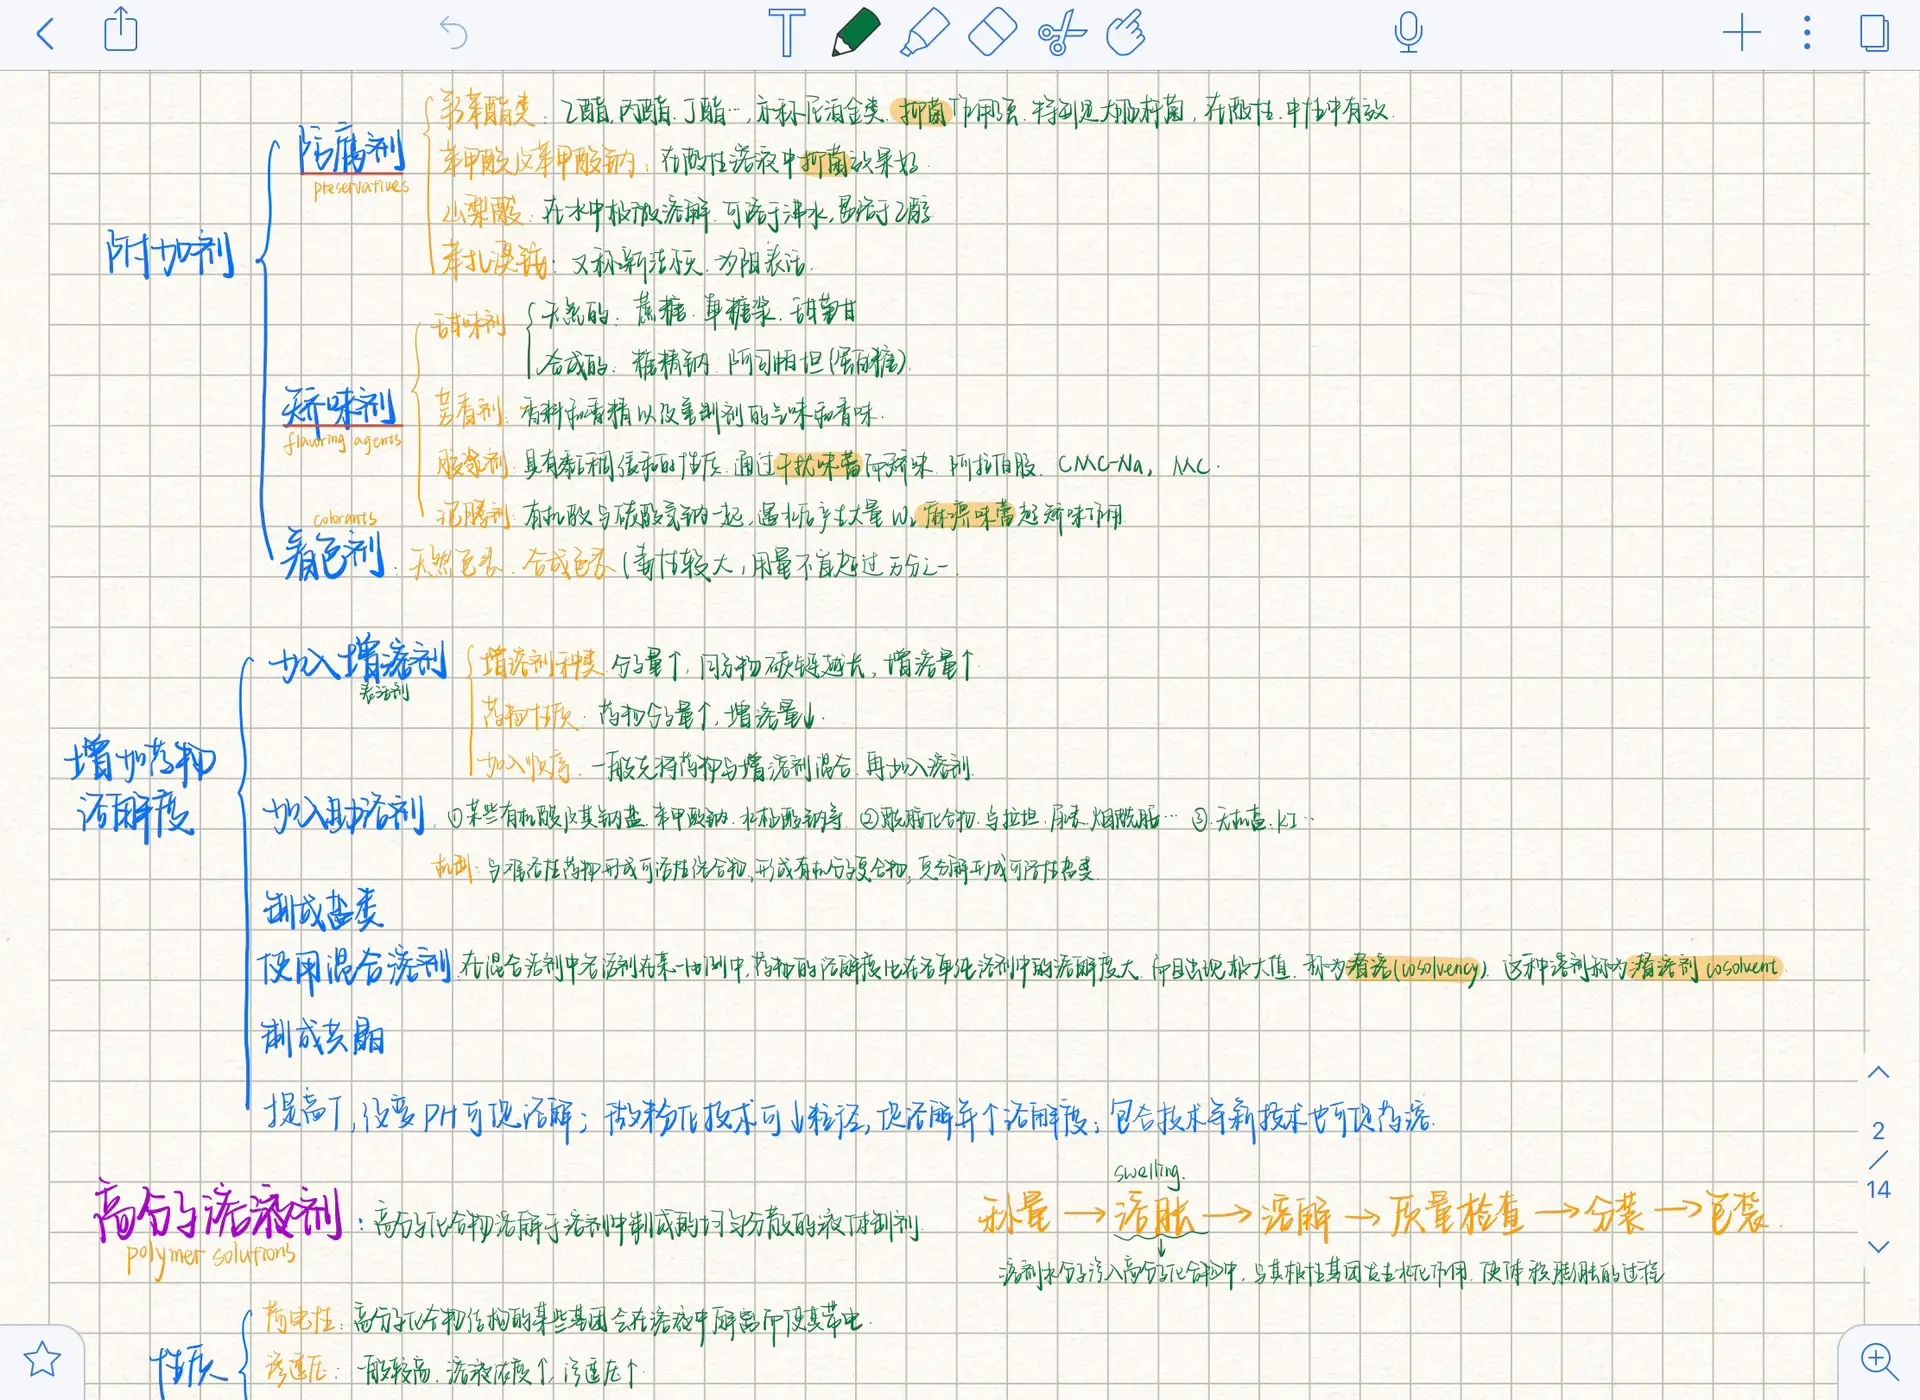 防腐剂
preservatives
羟苯酯类: 乙酯, 丙酯, 丁酯…, 亦称尼泊金类. 抑菌作用强. 特别是大肠杆菌, 在酸性. 中性中有效.
苯甲酸及苯甲酸钠: 在酸性溶液中抑菌效果好.
山梨酸: 在水中极微溶解. 可溶于沸水, 易溶于乙醇
附加剂
苯扎溴铵: 又称新洁尔灭. 为阳表活.
甜味剂
天然的: 蔗糖. 单糖浆. 甜菊苷
合成的: 糖精钠. 阿司帕坦(蛋白糖).
矫味剂
flavoring agents
芳香剂: 香料和香精以改善制剂的气味和香味.
胶浆剂: 具有黏稠缓和的性质. 通过干扰味蕾而矫味. 阿拉伯胶. CMC-Na, MC.
泡腾剂: 有机酸与碳酸氢钠一起, 遇水后产生大量CO₂ 麻痹味蕾起矫味作用.
colorants
着色剂: 天然色素. 合成色素 (毒性较大, 用量不宜超过万分之一.
加入增溶剂
表活剂
增溶剂种类. 分子量↑, 同系物碳链越长, 增溶量↑
药物性质. 药物分子量↑, 增溶量↓.
加入顺序. 一般先将药物与增溶剂混合. 再加入溶剂.
增加药物
溶解度
加入助溶剂. ①某些有机酸及其钠盐. 苯甲酸钠. 水杨酸钠等. ②酰胺化合物. 乌拉坦. 尿素. 烟酰胺… ③. 无机盐. KI…
机制: 与难溶性药物形成可溶性络合物, 形成有机分子复合物, 复分解形成可溶性盐类.
制成盐类
使用混合溶剂. 在混合溶剂中各溶剂在某一比例中, 药物的溶解度比在各单纯溶剂中的溶解度大. 而且出现极大值. 称为潜溶(cosolvency). 这种溶剂称为潜溶剂 cosolvent
制成共晶
提高T, 改变PH可促溶解; 微粉化技术可↓粒径, 促溶解并↑溶解度; 包合技术等新技术也可促药溶.
swelling.
高分子溶液剂: 高分子化合物溶解于溶剂中制成的均匀分散的液体制剂.
polymer solutions
称量→溶胀→溶解→质量检查→分装→包装.
溶剂水分子渗入高分子化合物中. 与其极性基团发生水化作用. 使体积膨胀的过程
性质
荷电性: 高分子化合物结构的某些基团会在溶液中解离而使其带电.
渗透压: 一般较高. 溶液浓度↑, 渗透压↑.
2
/
14